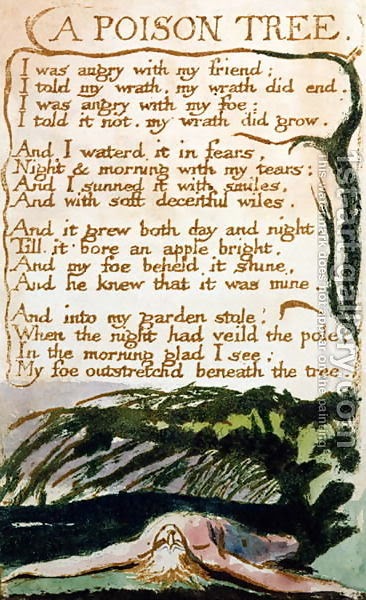 A POISON TREE.
I was angry with my friend;
I told my wrath, my wrath did end.
I was angry with my foe:
I told it not, my wrath did grow.
And I waterd it in fears,
Night & morning with my tears:
And I sunned it with smiles,
And with soft deceitful wiles.
And it grew both day and night
Till it bore an apple bright.
And my foe beheld it shine,
And he knew that it was mine
And into my garden stole;
When the night had veild the pole
In the morning glad I see;
My foe outstretchd beneath the tree
1st-art-gallery.com
This watermark does not
of the painting